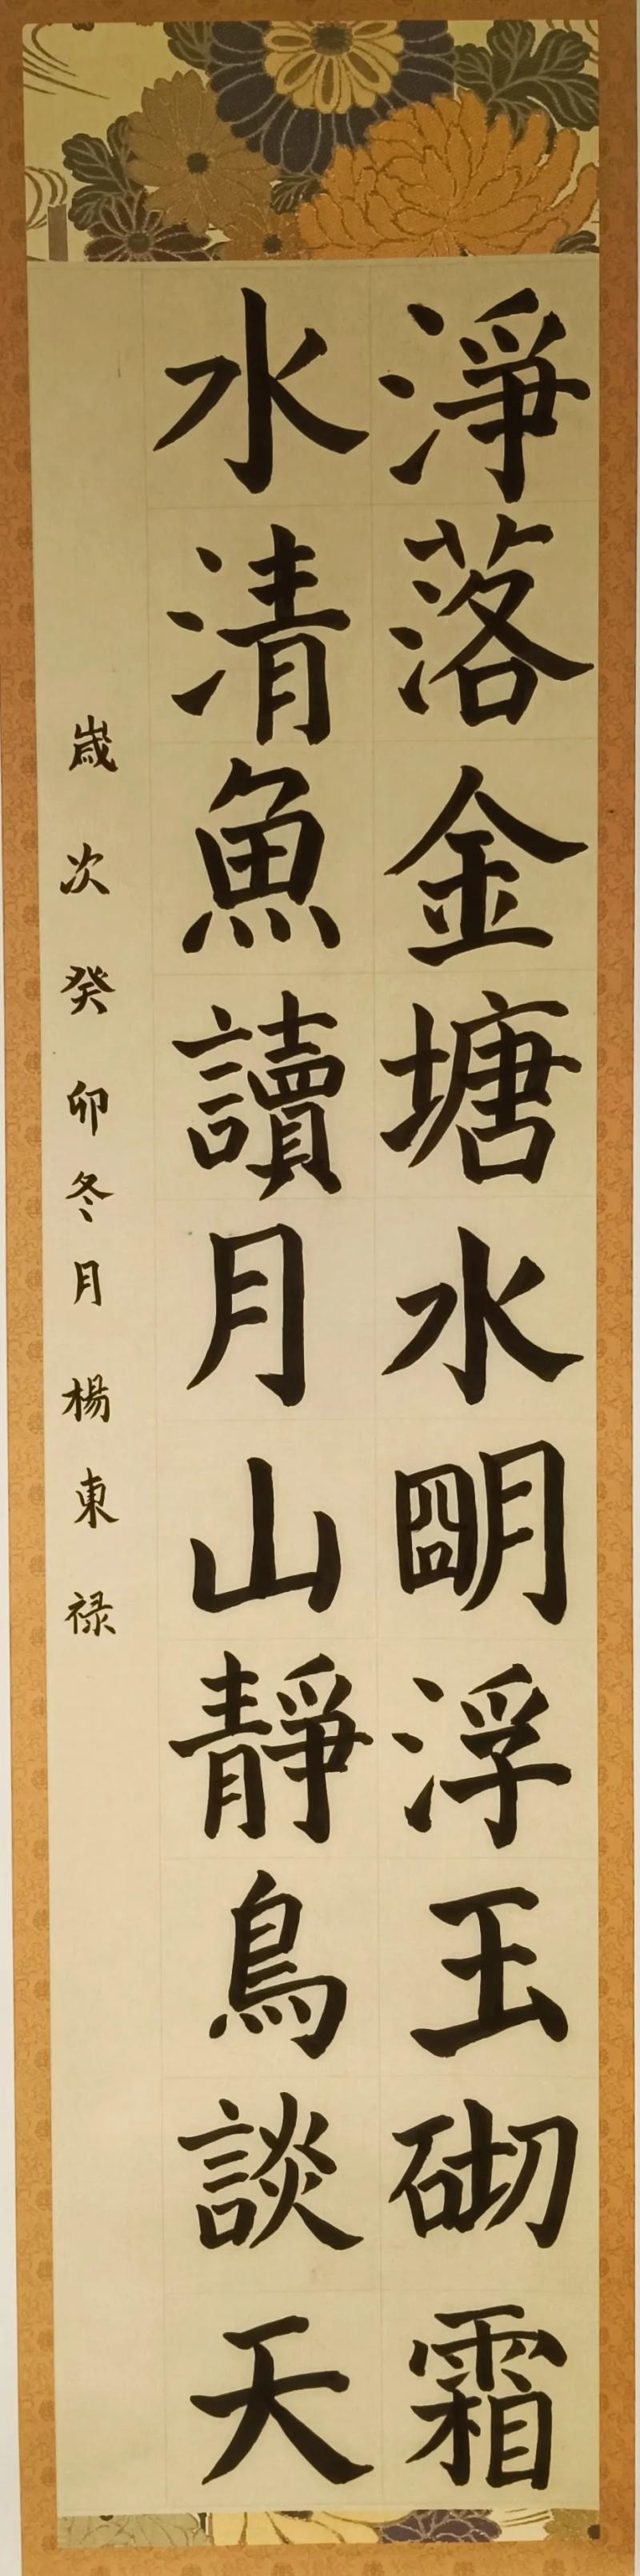 淨落金塘水明浮玉砌霜
水清魚讀月山靜鳥談天
歲次癸卯冬月楊東禄